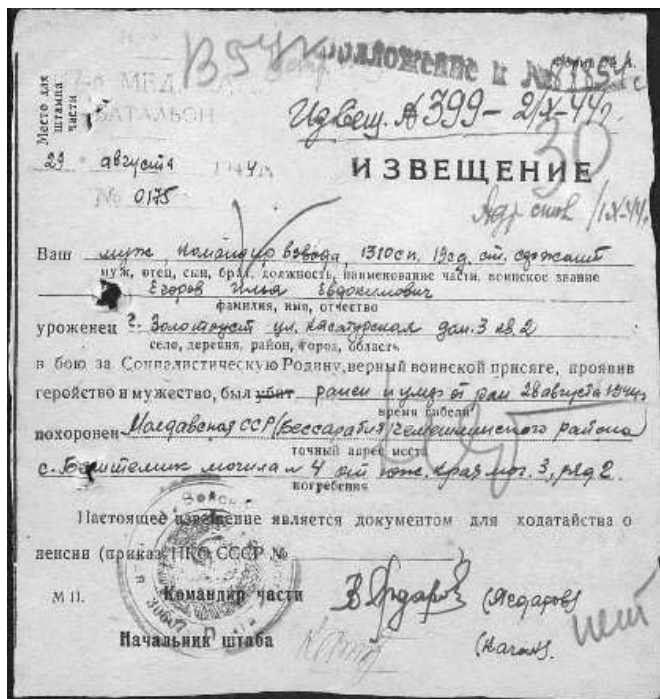 Приложение к №
Извещ. № 399 - 2/X-44г.
Место для штампа части
МЕД
БАТАЛЬОН
29 августа 1944
№ 0175
30
ИЗВЕЩЕНИЕ
1/X-44г.
Ваш муж, командир взвода, 1310 сп, 19 сд, ст. сержант
муж, отец, сын, брат, должность, наименование части, воинское звание
Егоров Илья Евдокимович
фамилия, имя, отчество
уроженец г. Златоуст ул. дом. 3 кв. 2
село, деревня, район, город, область
в бою за Социалистическую Родину, верный воинской присяге, проявив
геройство и мужество, был убит ранен и умер от ран 28 августа 1944г
время гибели
похоронен Молдавская ССР (Бессарабия) района
точный адрес места
с. могила № 4 от юж. края мог. 3, ряд 2.
погребения
Настоящее извещение является документом для ходатайства о
пенсии (приказ НКО СССР № )
М П. Командир части
нет
Начальник штаба